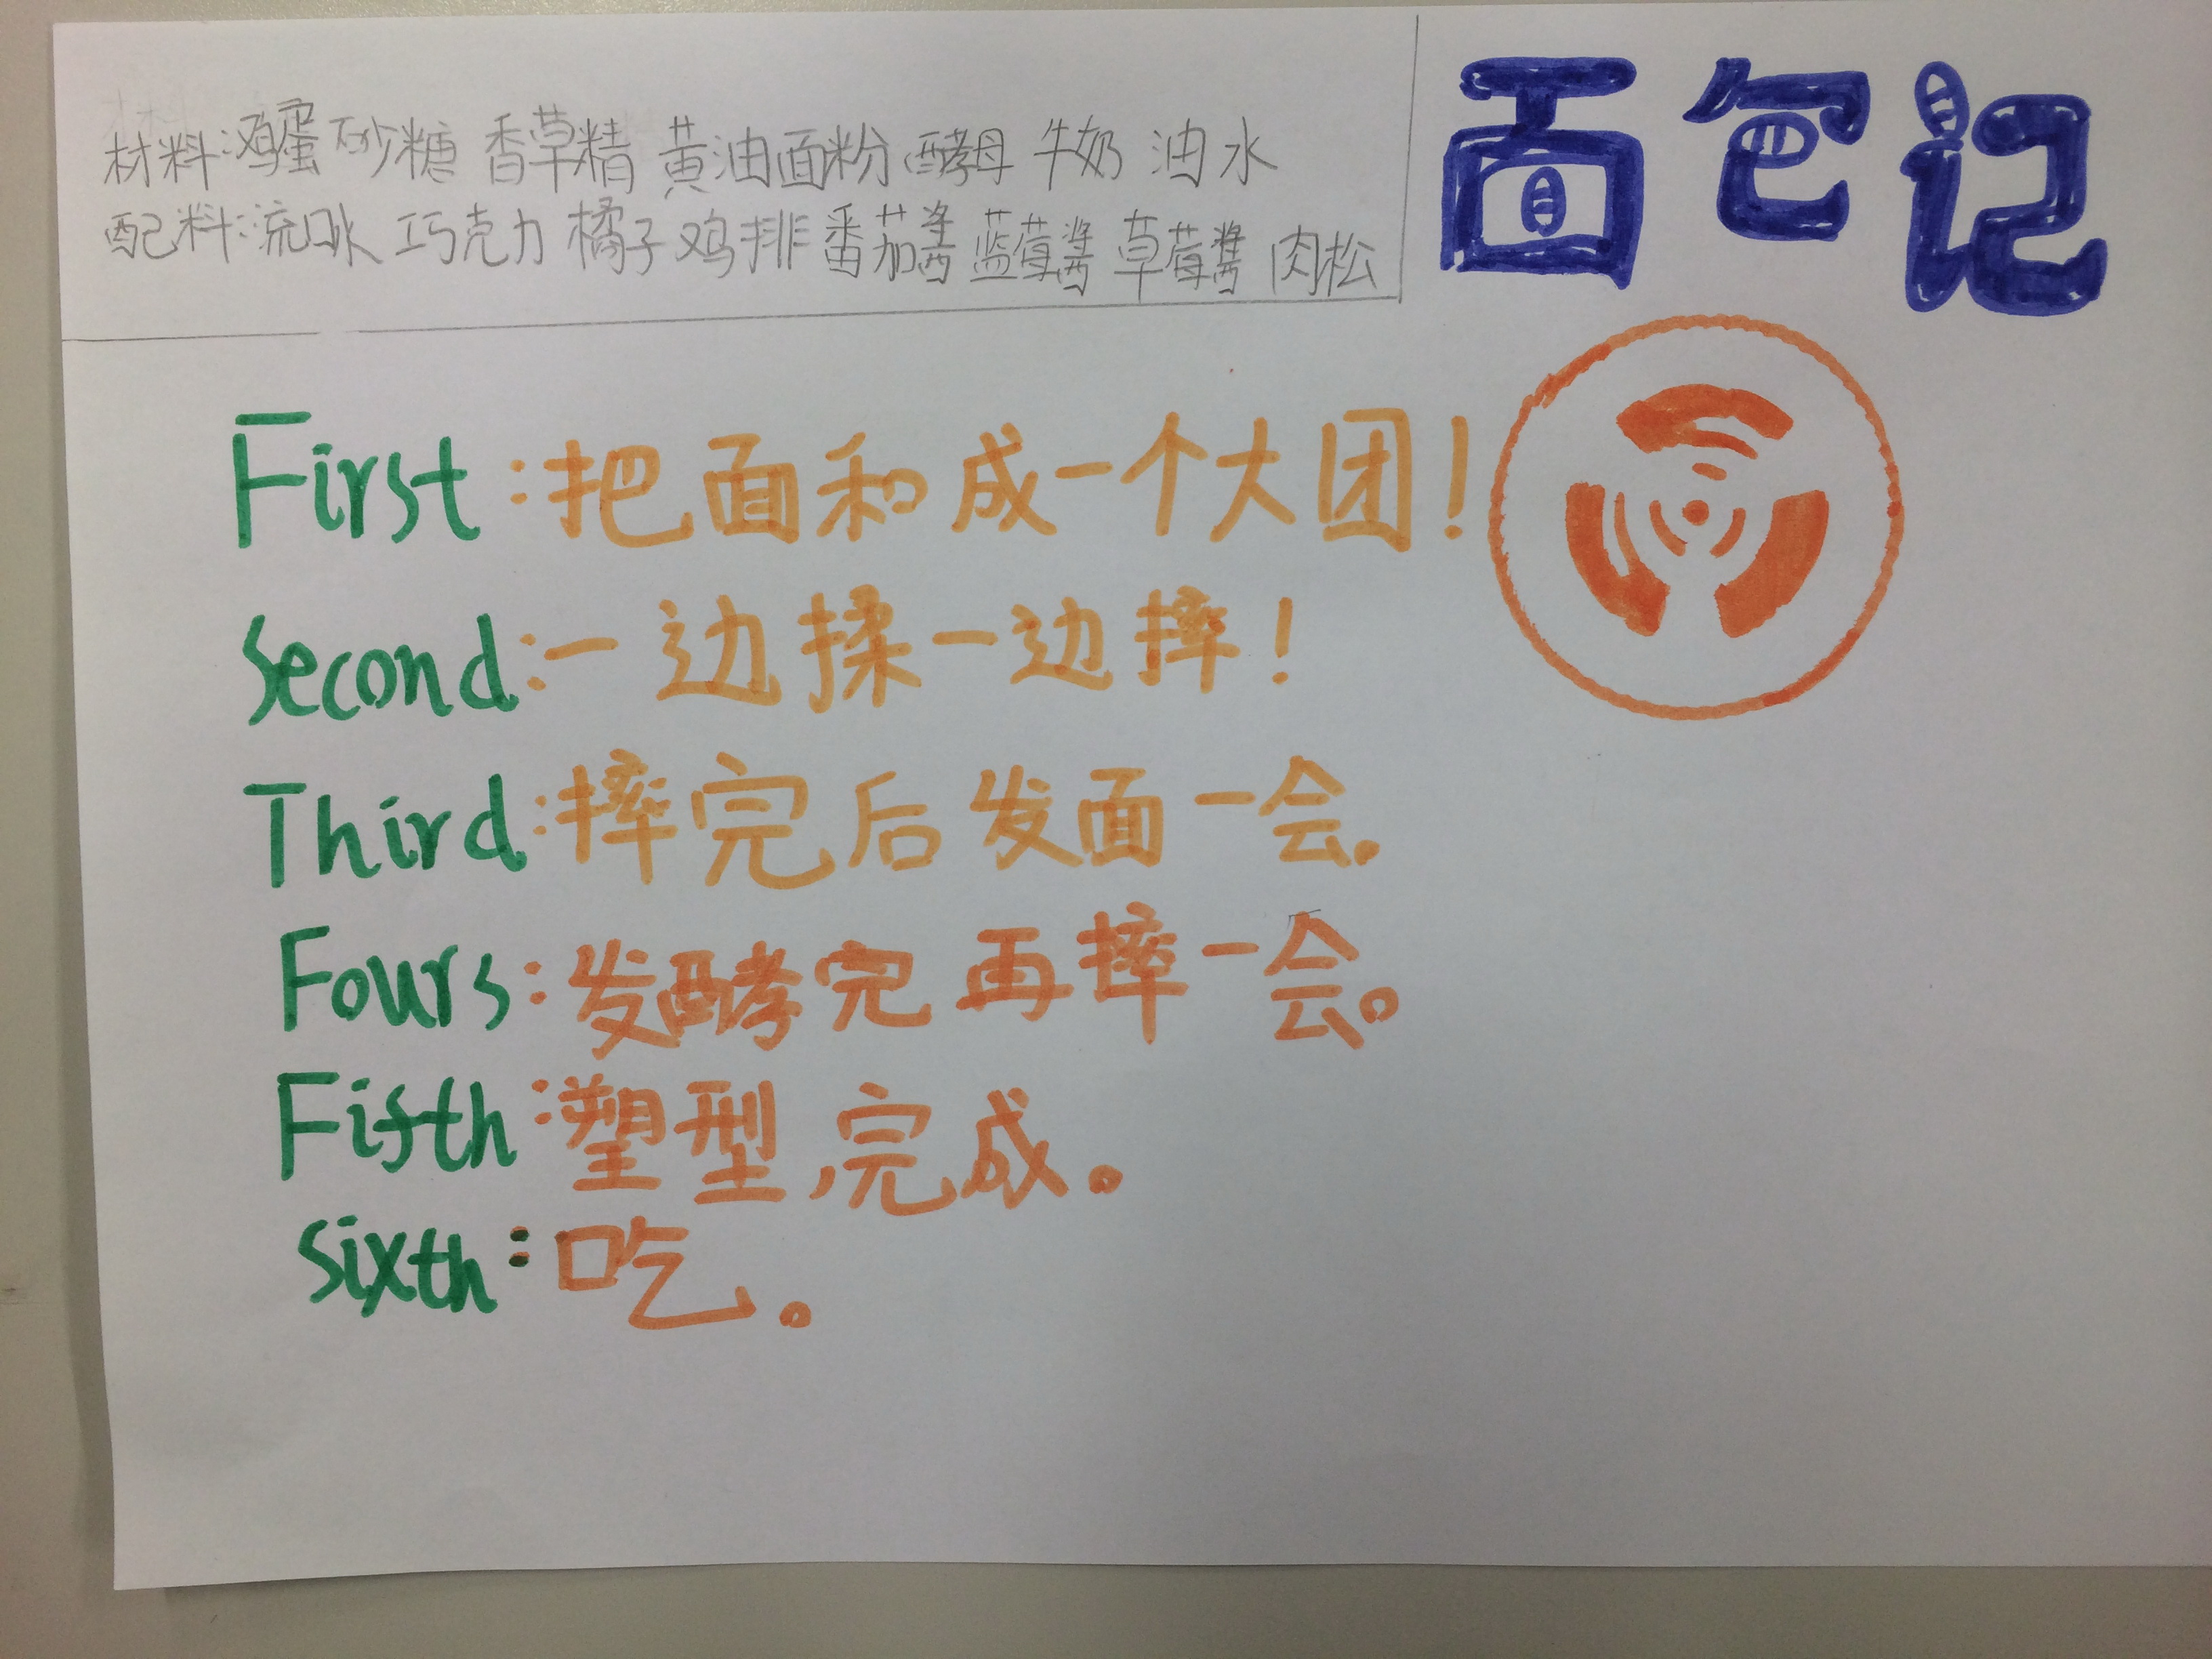 面包记
材料:鸡蛋 砂糖 香草精 黄油面粉 酵母 牛奶 油水
配料:流 巧克力 橘子 鸡排 番茄酱 蓝莓酱 草莓酱 肉松
First:把面和成一个大团!
Second:一边揉一边摔!
Third:摔完后发面一会.
Fours:发酵完再摔一会。
Fifth:塑型,完成。
sixth:吃。